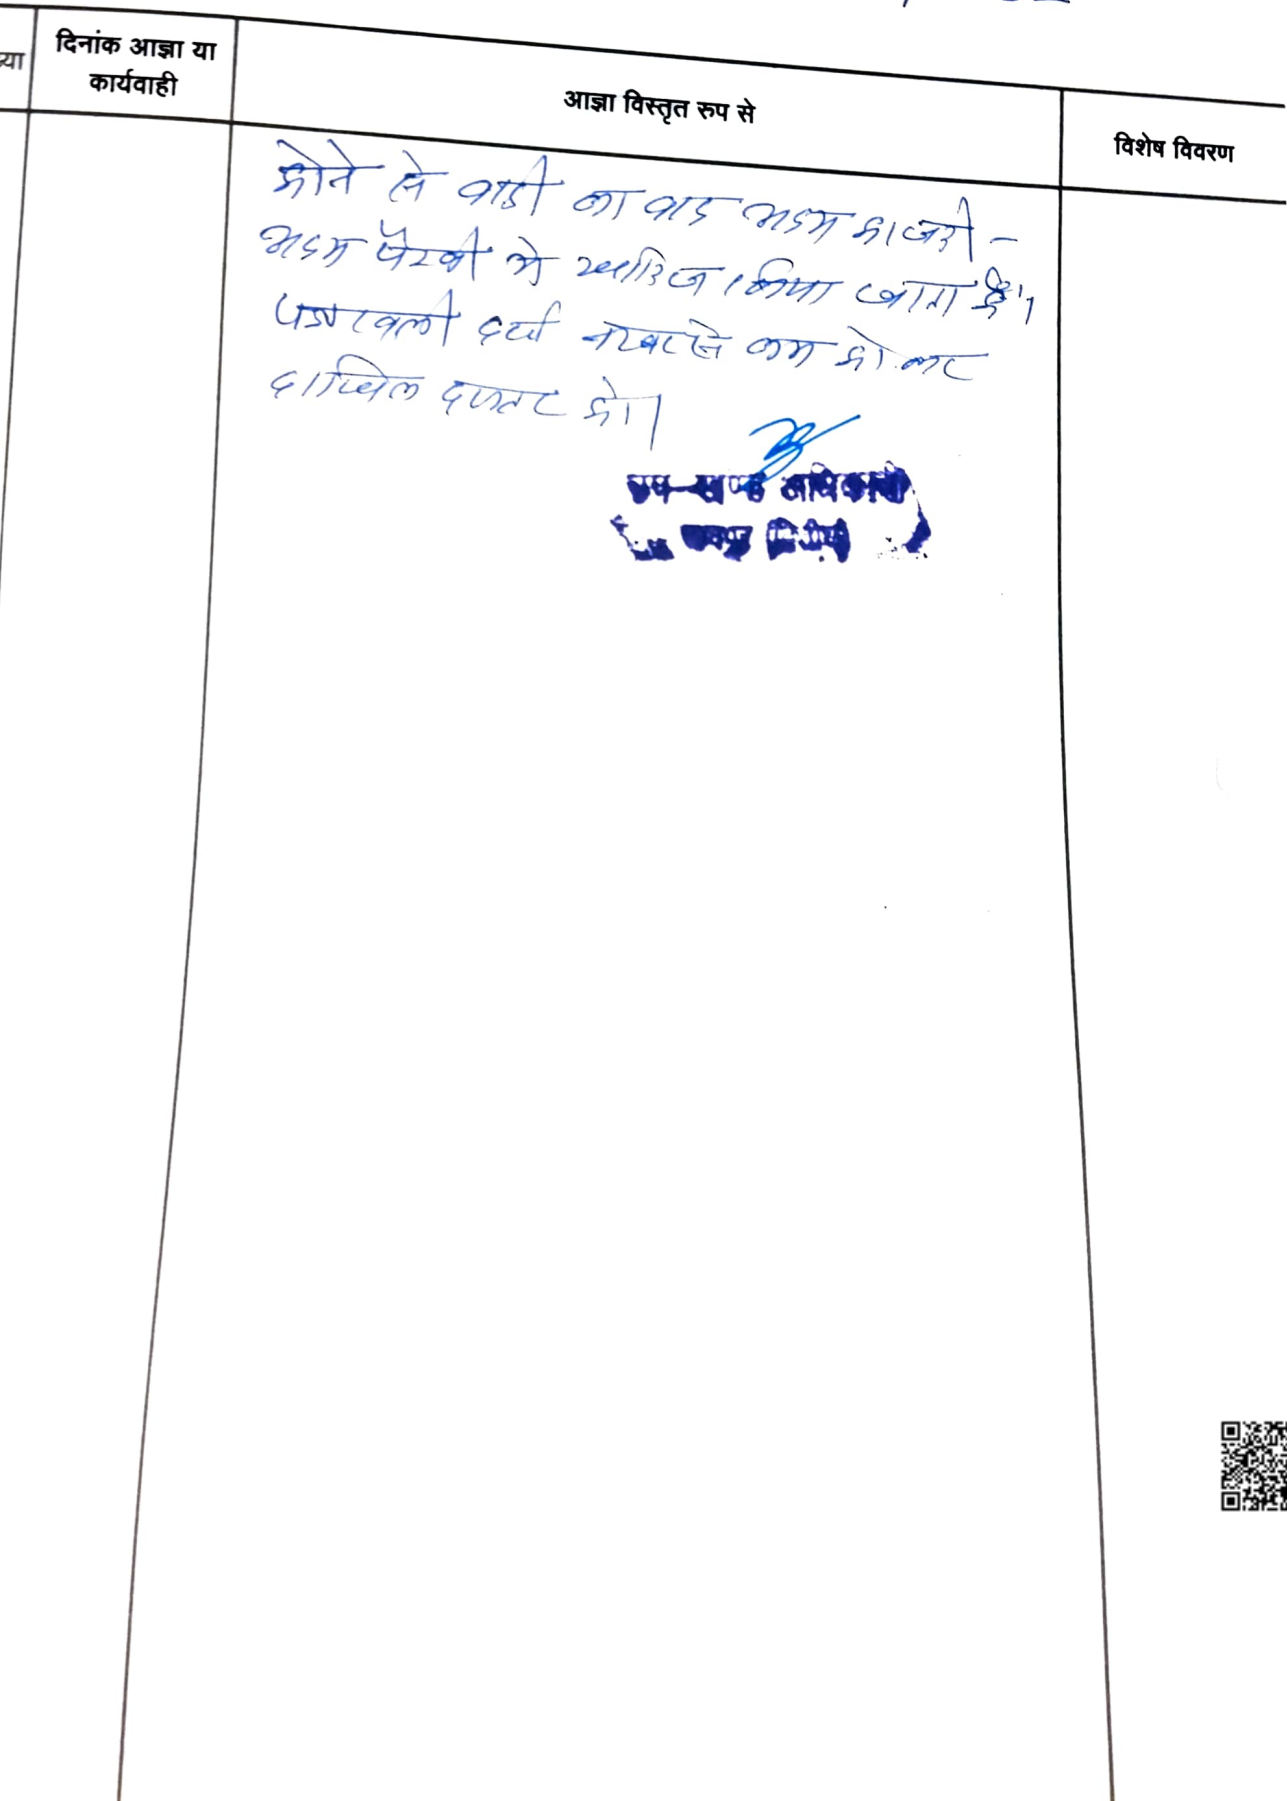 या
दिनांक आज्ञा या
कार्यवाही
आज्ञा विस्तृत रुप से
विशेष विवरण
होने से वादी का वाद अदम हाजरी -
अदम पैरवी में खारिज किया जाता है।
पत्रावली दर्ज नम्बर से कम हो कर
दाखिल दफ्तर हो।
उप-खण्ड अधिकारी